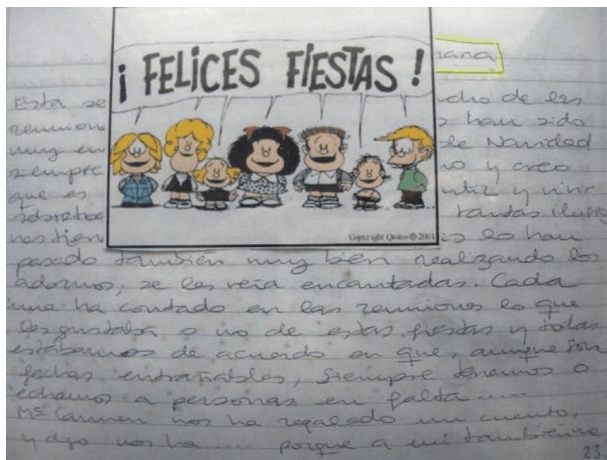 ¡ FELICES FIESTAS !
Copyright Quino © 2001
Esta se cho de las
reunion s han sido
muy en de Navidad
siempre no y creo
que es ntir y vivir
sobretodo tantas ilus
nos tien s lo han
pasado también muy bien realizando los
adornos, se les veía encantadas. Cada
una ha contado en las reuniones lo que
les gustaba o no de estas fiestas y todas
estábamos de acuerdo en que, aunque son
fechas entrañables, siempre tenemos o
echamos a personas en falta.....
Mª Carmen nos ha regalado un cuento,
y digo nos ha ..... porque a mi también me
23